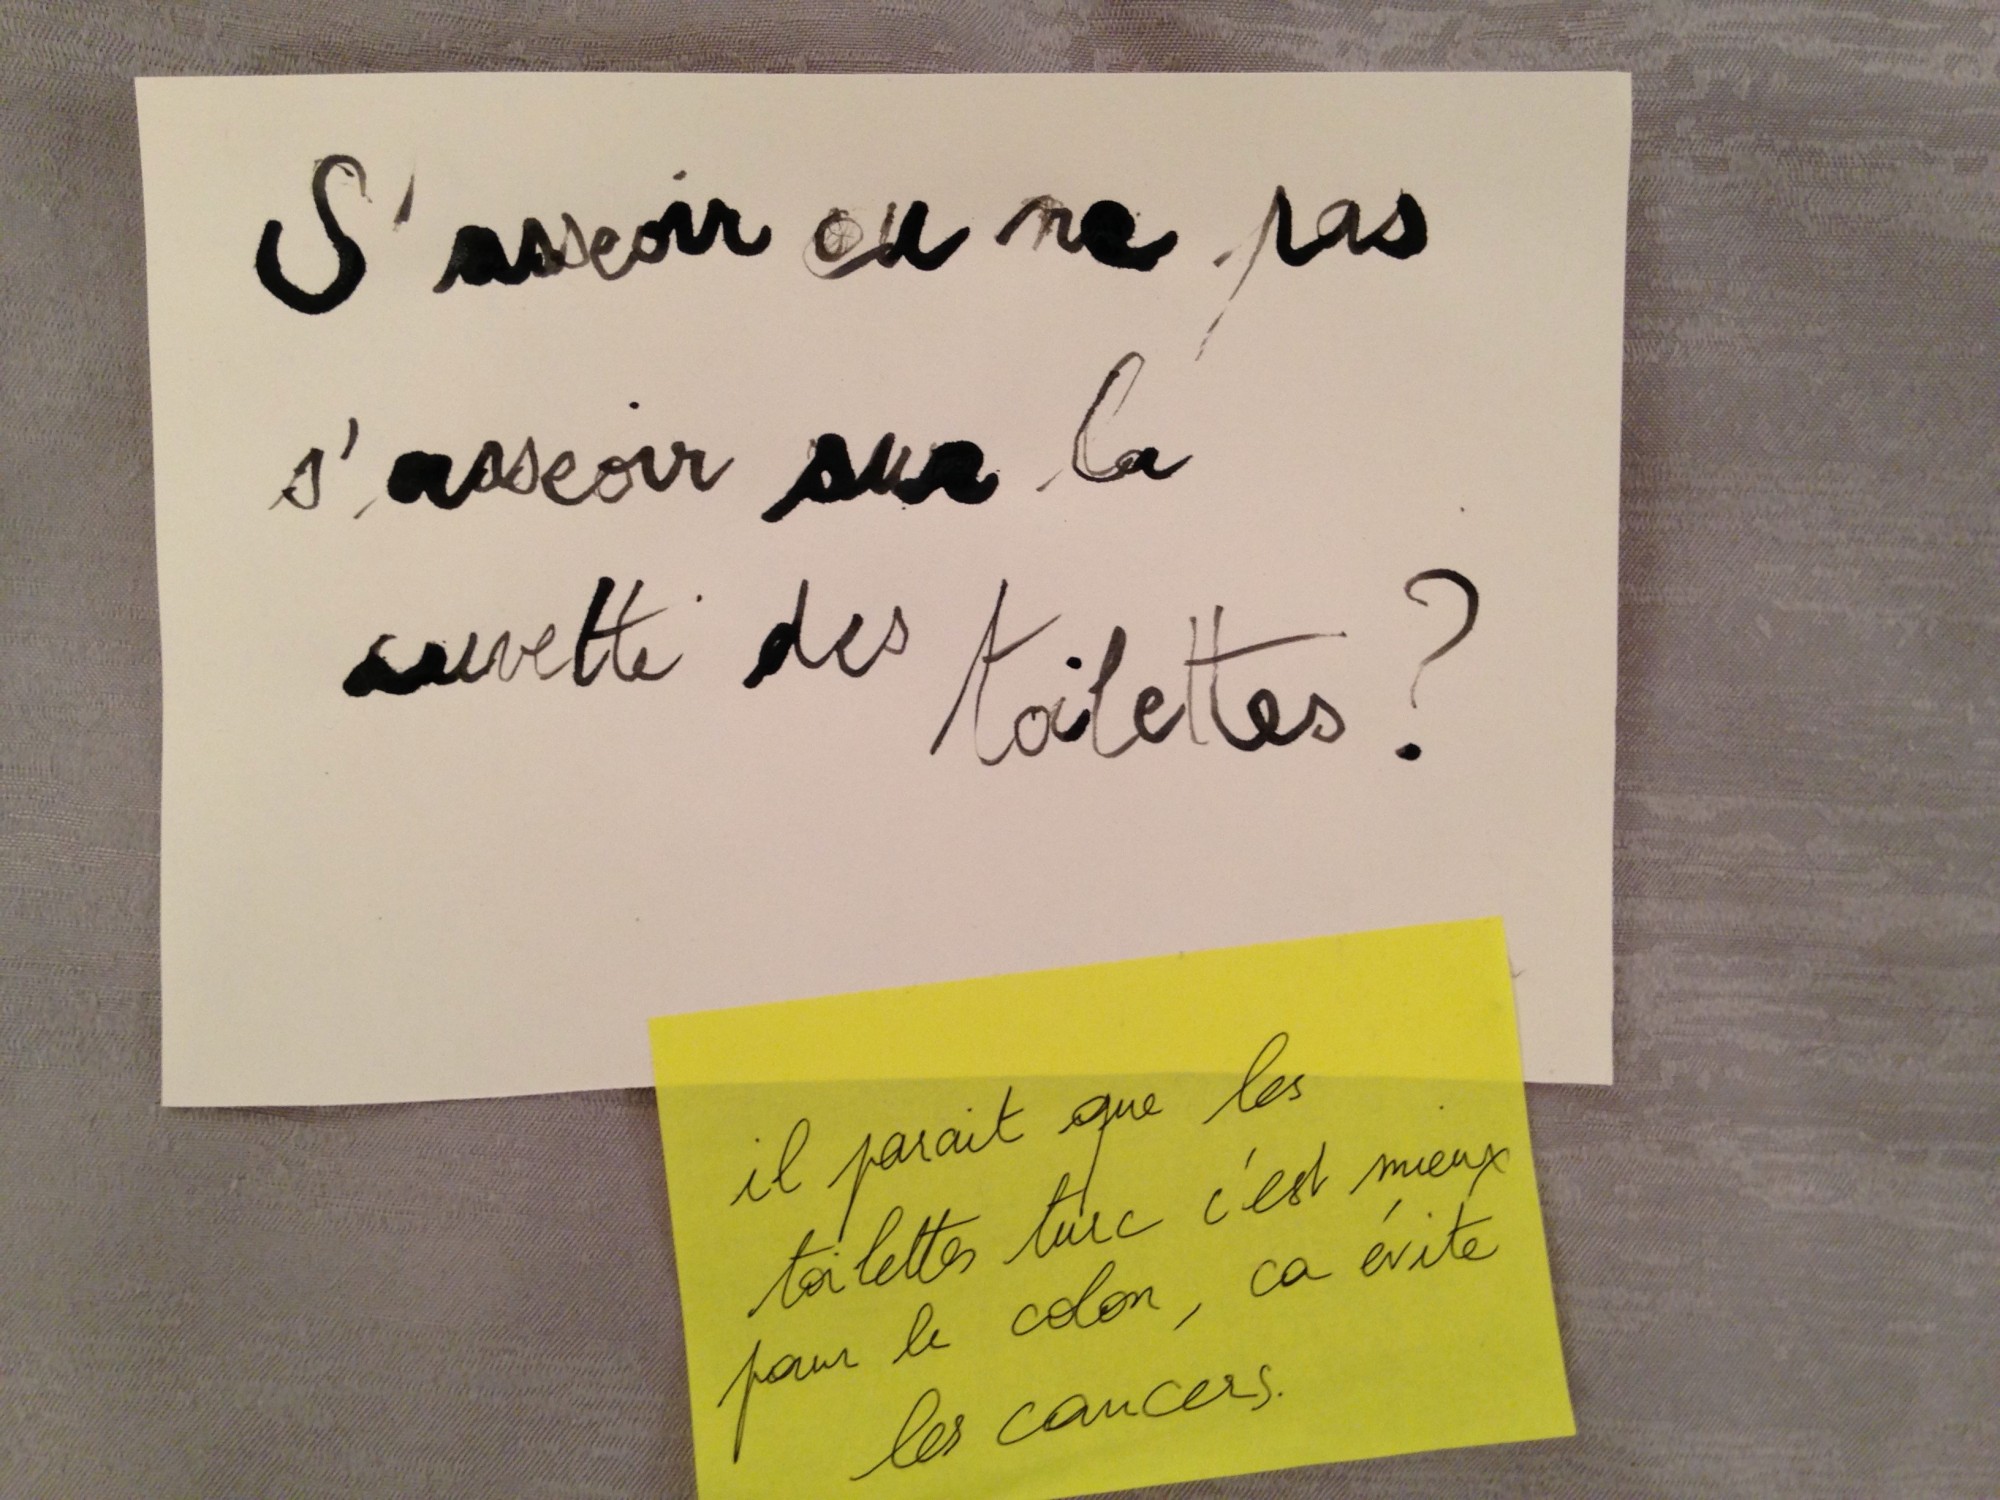 S'asseoir ou ne pas
s'asseoir sur la
cuvette des toilettes ?
il parait que les
toilettes turc c'est mieux
pour le colon, ca évite
les cancers.